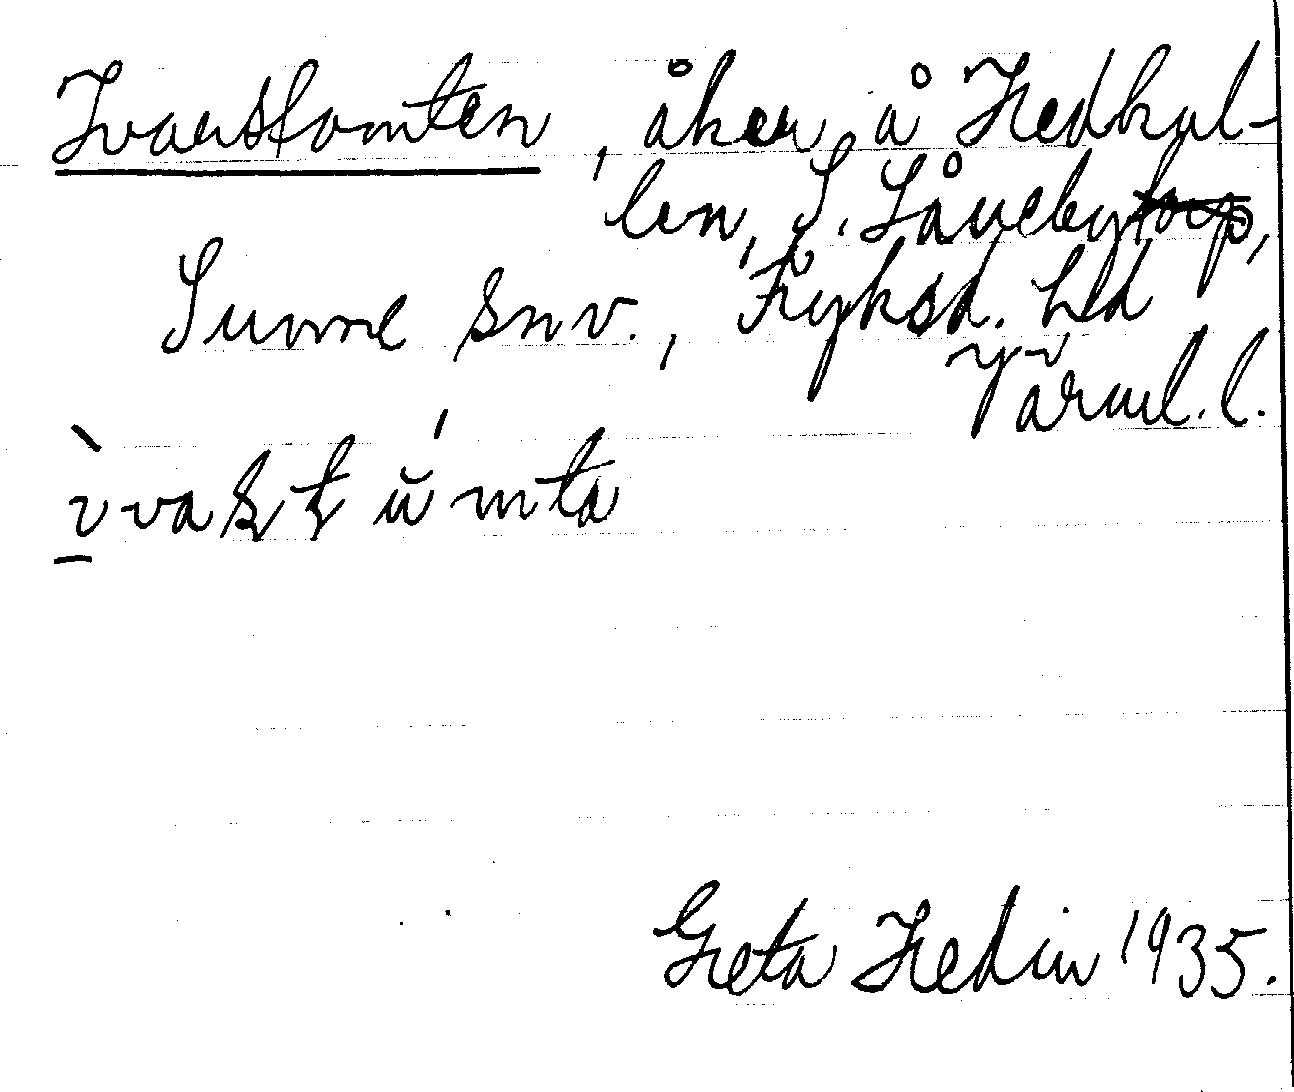 Ivarstomten, åker å Hedkul-
len, S. Låneby,
Sunne snv., Fryksd. hd
Värml. l.
Greta Hedin 1935.